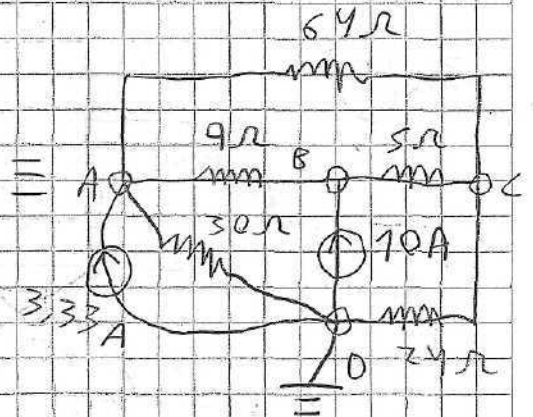 64Ω
9Ω B 5Ω
≡ A C
30Ω
10A
3,33
A
24Ω
D